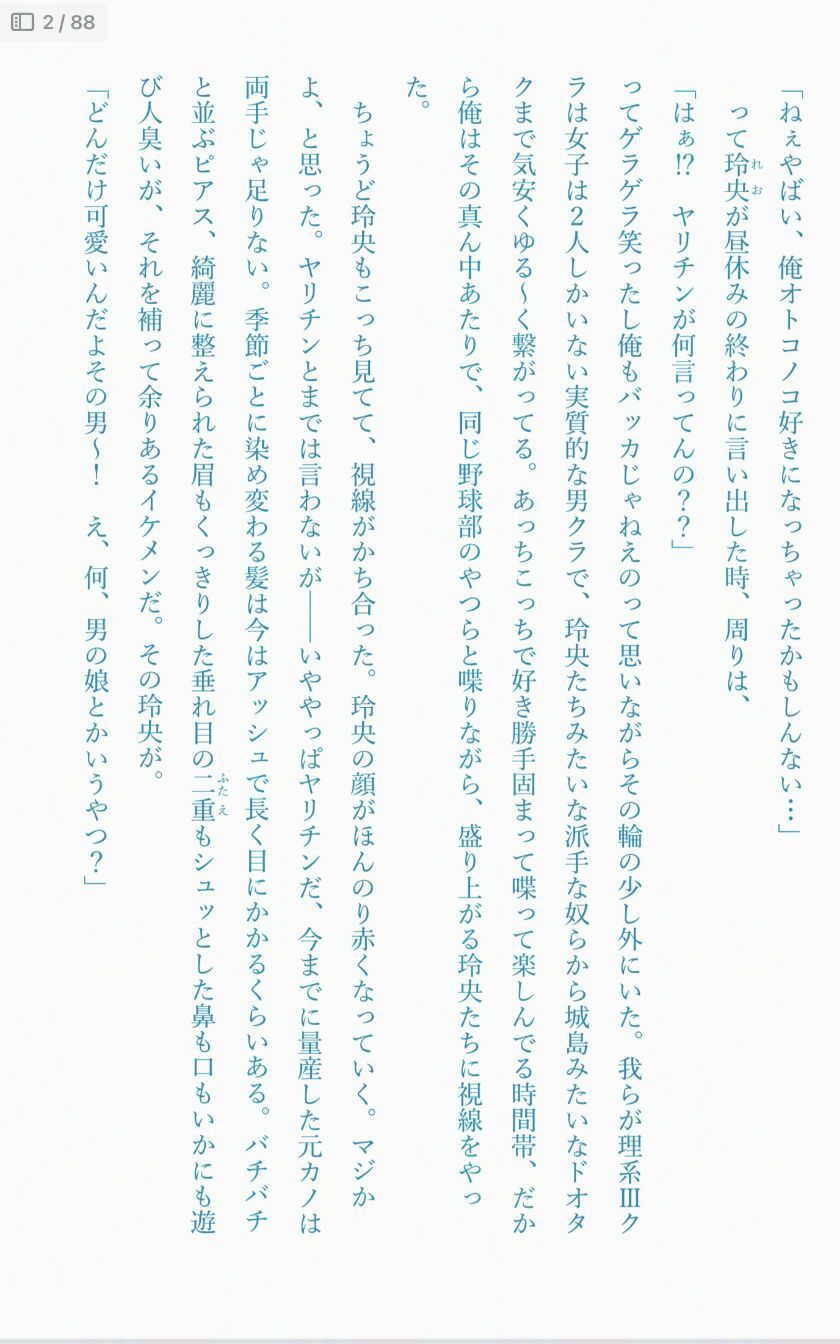 2 / 88
「ねぇやばい、俺オトコノコ好きになっちゃったかもしんない…」
って玲央が昼休みの終わりに言い出した時、周りは、
れお
「はぁ!?　ヤリチンが何言ってんの？？」
ってゲラゲラ笑ったし俺もバッカじゃねえのって思いながらその輪の少し外にいた。我らが理系Ⅲク
ラは女子は２人しかいない実質的な男クラで、玲央たちみたいな派手な奴らから城島みたいなドオタ
クまで気安くゆる〜く繋がってる。あっちこっちで好き勝手固まって喋って楽しんでる時間帯、だか
ら俺はその真ん中あたりで、同じ野球部のやつらと喋りながら、盛り上がる玲央たちに視線をやっ
た。
ちょうど玲央もこっち見てて、視線がかち合った。玲央の顔がほんのり赤くなっていく。マジか
よ、と思った。ヤリチンとまでは言わないが――いややっぱヤリチンだ、今までに量産した元カノは
両手じゃ足りない。季節ごとに染め変わる髪は今はアッシュで長く目にかかるくらいある。バチバチ
と並ぶピアス、綺麗に整えられた眉もくっきりした垂れ目の二重もシュッとした鼻も口もいかにも遊
ふたえ
び人臭いが、それを補って余りあるイケメンだ。その玲央が。
「どんだけ可愛いんだよその男〜！　え、何、男の娘とかいうやつ？」